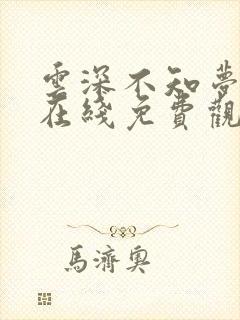 雲深不知夢
在綫免費觀
馬濟奧